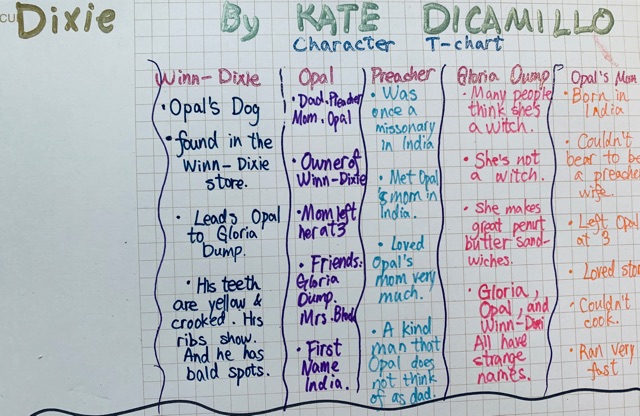 Dixie By KATE DICAMILLO
Character T-chart
Winn-Dixie
• Opal's Dog
• found in the
Winn-Dixie
store.
• Leads Opal
to Gloria
Dump.
• His teeth
are yellow &
crooked. His
ribs show.
And he has
bald spots.
Opal
• Dad, Preacher
Mom, Opal
• Owner of
Winn-Dixie
• Mom left
her at 3
• Friends:
Gloria
Dump.
Mrs. Block
• First
Name
India.
Preacher
• Was
once a
missonary
in India
• Met Opal
's mom in
India.
• Loved
Opal's
mom very
much.
• A kind
man that
Opal does
not think
of as dad.
Gloria Dump
• Many people
think she's
a witch.
• She's not
a witch.
• She makes
great penut
butter sand-
wiches.
• Gloria,
Opal, and
Winn-Dixi
All have
strange
names.
Opal's Mom
• Born in
India
• Couldn't
bear to be
a preacher
wife.
• Left Opal
at 3
• Loved sto
• Couldn't
cook.
• Ran very
fast